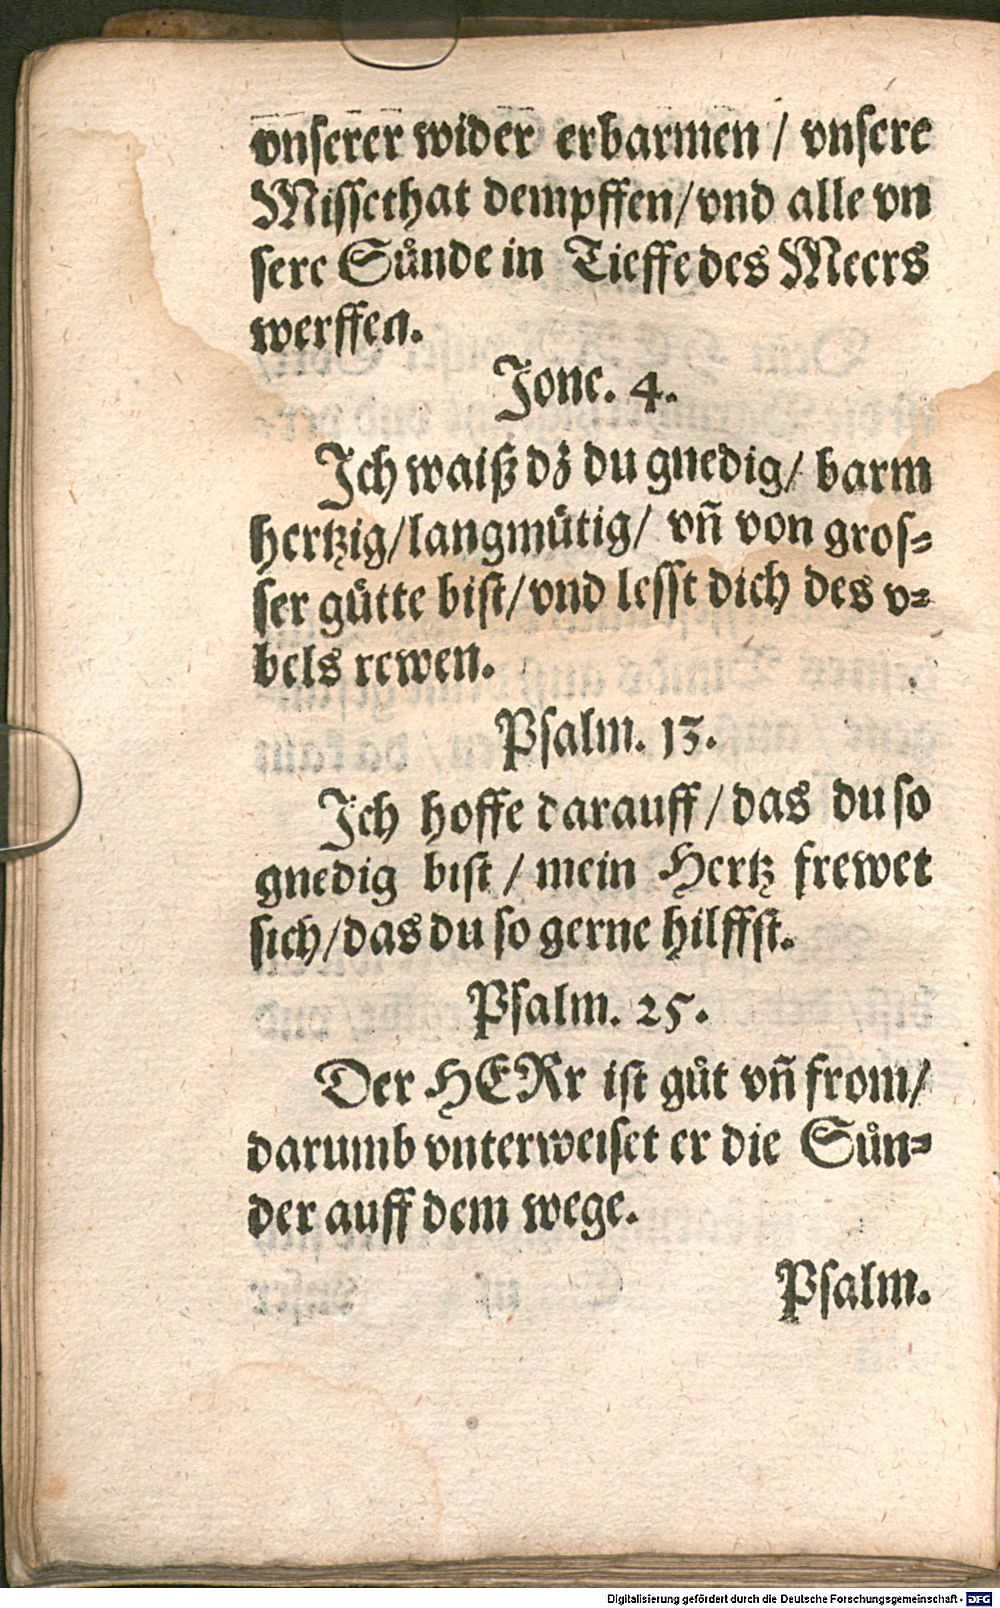 vnſerer wider erbarmen / vnſere
Miſſethat dempffen/vnd alle vn
ſere Suͤnde in Tieffe des Meers
werffen.
Jone. 4.
Ich waiß dz du gnedig/ barm
hertzig/langmuͤtig/ vñ von groſ⸗
ſer guͤtte biſt/vnd leſſt dich des v⸗
bels rewen.
Pſalm. 13.
Ich hoffe darauff / das du ſo
gnedig biſt / mein Hertz frewet
ſich/das du ſo gerne hilffſt.
Pſalm. 25.
Der HERr iſt guͦt vñ from/
darumb vnterweiſet er die Suͤn⸗
der auff dem wege.
Pſalm.
Digitalisierung gefördert durch die Deutsche Forschungsgemeinschaft - DFG